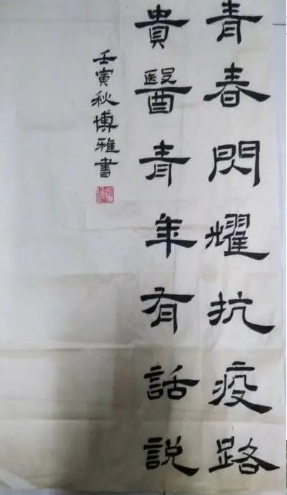 青春閃耀抗疫路
貴醫青年有話説
壬寅秋博雅書